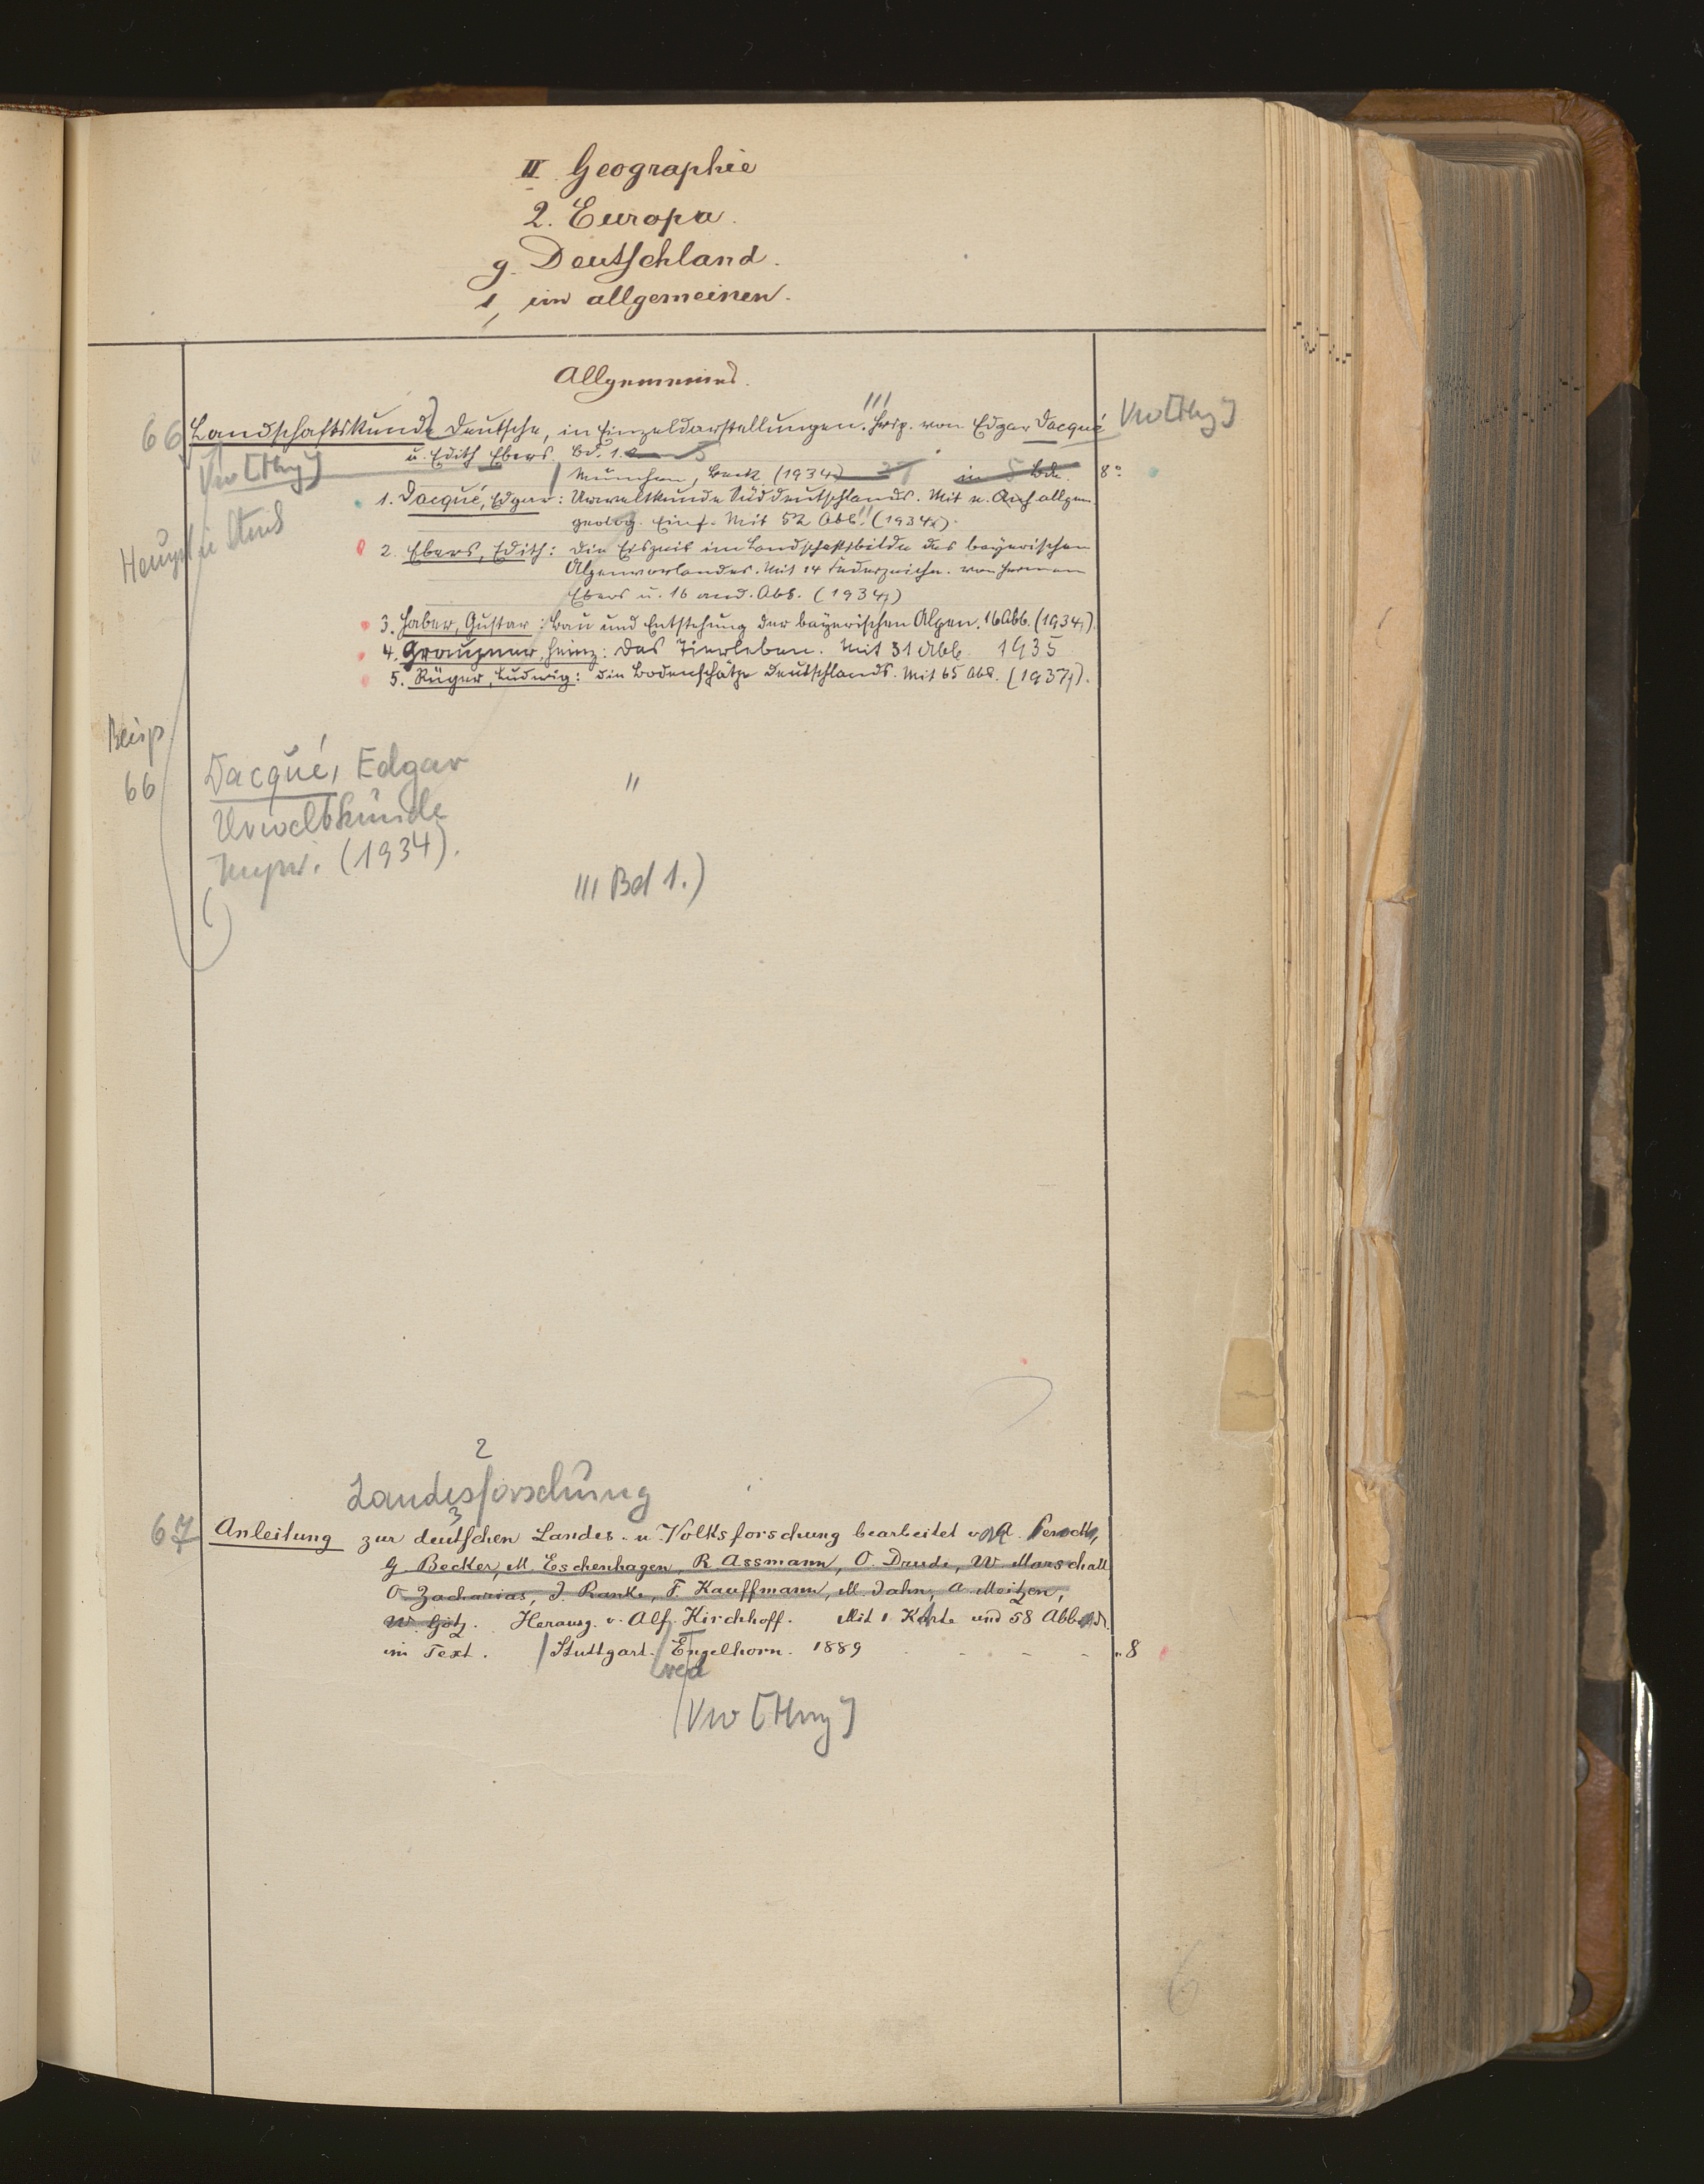 II Geographie
2. Europa.
g. Deutschland.
1, im allgemeinen.
Allgemeines.
66 Landschaftskunde, Deutsche, in Einzeldarstellungen. Hrsg. von Edgar Dacqué
u. Edith Ebers. Bd. 1. 5
München, Beck (1934) 37 in 5 Bde. 8°
1. Dacqué, Edgar: Urweltkunde Süddeutschlands. Mit e. allgem.
geolog. Einf. Mit 52 Abb. (1934).
2. Ebers, Edith: Die Eiszeit im Landschaftsbilde des bayerischen
Alpenvorlandes. Mit 14 Federzeichn. von Hermann
Ebers u. 16 and. Abb. (1934)
3. Haber, Gustav: Bau und Entstehung der bayerischen Alpen. 16 Abb. (1934).
4. Graupner, Heinz: Das Tierleben. Mit 31 Abb. 1935
5. Rüger, Ludwig: Die Bodenschätze Deutschlands. Mit 65 Abb. (1937).
Beisp
66
Dacqué, Edgar
Urweltkunde
(1934).
"
III Bd 1.)
2
Landesforschung
3
67 Anleitung zur deutschen Landes- u. Volksforschung bearbeitet v. A. Penck,
G. Becker, M. Eschenhagen, R. Assmann, O. Drude, W. Marschall
O. Zacharias, J. Ranke, F. Kauffmann, M. Jahn, A. Meitzen,
W. Götz. Herausg. v. Alf. Kirchhoff. Mit 1 Karte und 58 Abbild.
im Text. Stuttgart. Engelhorn. 1889 - - - "8
6